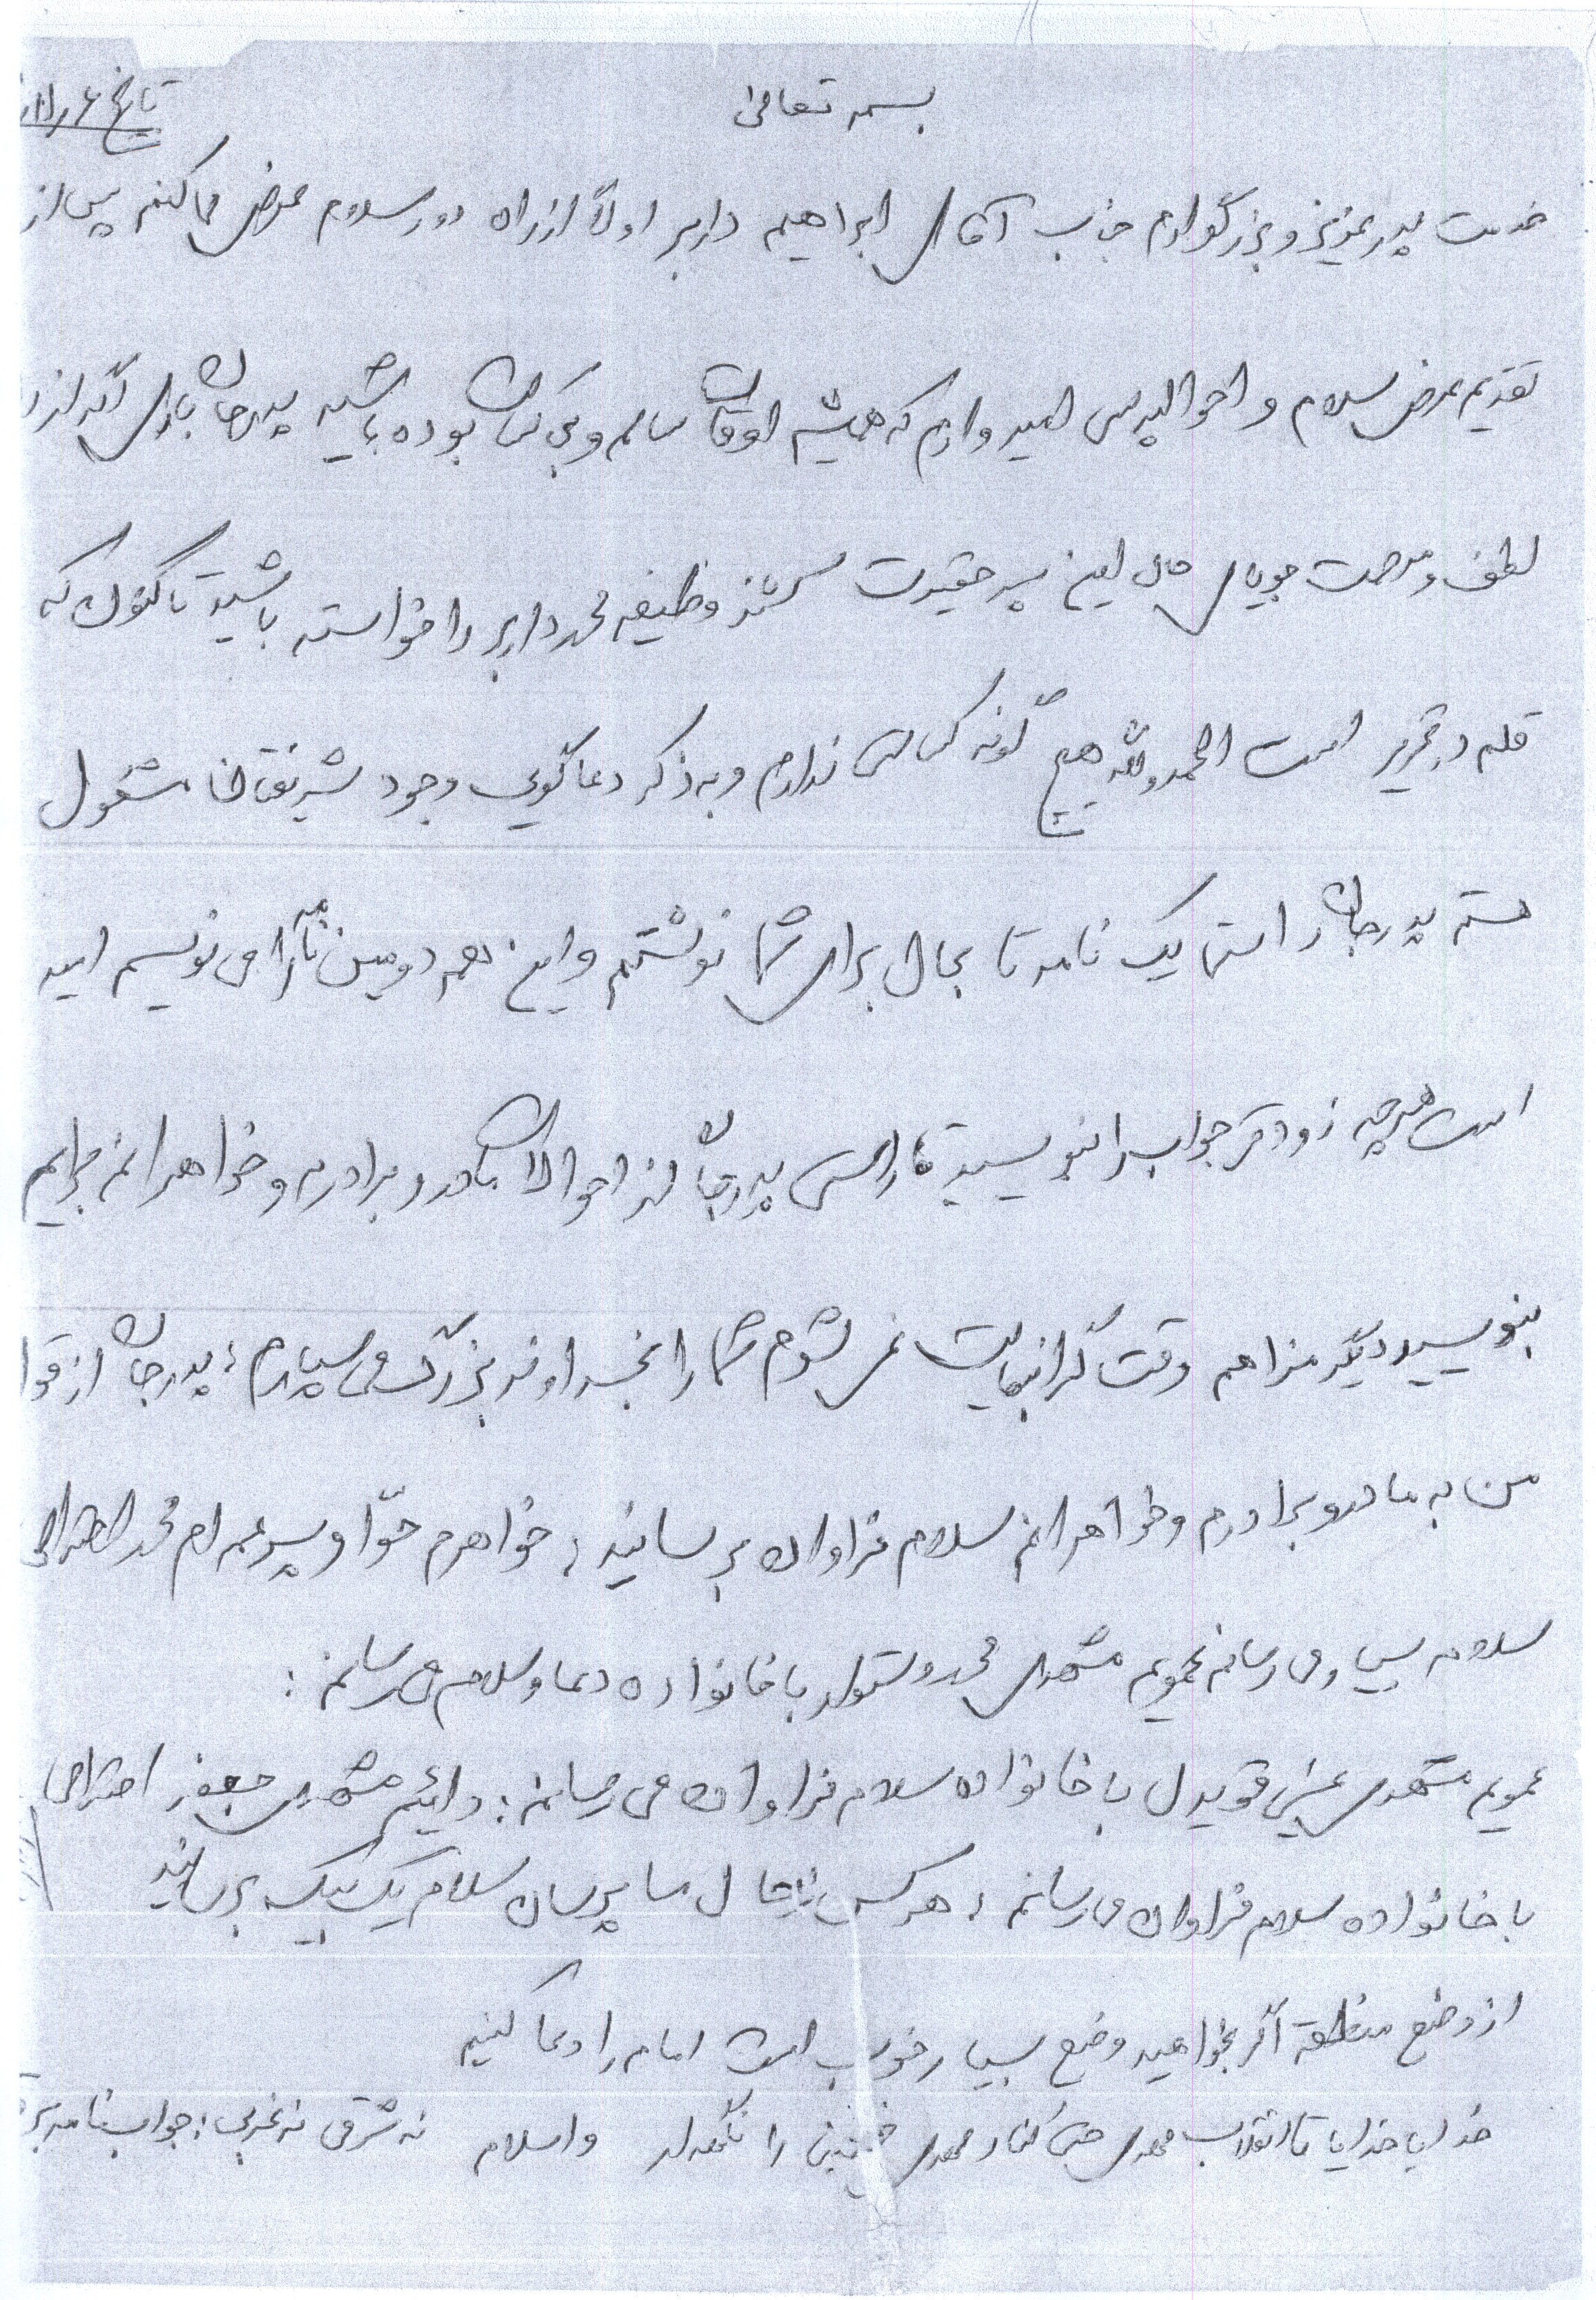 بسمه تعالی
تاریخ
خدمت پدر عزیز و بزرگوارم جناب آقای ابراهیم دلبر اولاً از راه دور سلام عرض می کنم پس از
تقدیم عرض سلام و احوالپرسی امیدوارم که همیشه اوقات سالم و بی کسالت بوده باشید پدرجان باری اگر از
لطف و مرحمت جویای حال این پسر حقیرت سرباز وظیفه محمد دلبر را خواسته باشید تا کنون که
قلم در تحریر است الحمدولله هیچ گونه کسالتی ندارم و به ذکر دعاگویی وجود شریفتان مشغول
هستم پدرجان راستی یک نامه تا بحال برای شما نوشتم و این هم دومین نامه را می نویسم امید
است هرچه زودتر جواب را بنویسید راستی پدرجان از احوالات مادر و برادرم و خواهرانم برایم
بنویسید دیگر مزاهم وقت گرانبهایت نمی شوم شما را بخداوند بزرگ می سپارم ؛ پدرجان از قول
من به مادر و برادرم و خواهرانم سلام فراوان برسانید ؛ خواهرم حوّا و پسر عمه ام محمد
سلام بسیار می رسانم عمویم مشهدی محمد با خانواده دعا و سلام می رسانم :
عمویم مشهدی با خانواده سلام فراوان می رسانم ؛ دائیم مشهدی جعفر احترامی
با خانواده سلام فراوان می رسانم ؛ هر کس سلام یک بیک برسانید
از وضع منطقه اگر بخواهید وضع بسیار خوب است امام را دعا کنید
خدایا خدایا تا انقلاب مهدی حتی کنار مهدی خمینی را نگهدار والسلام نه شرقی نه غربی ؛ جواب نامه